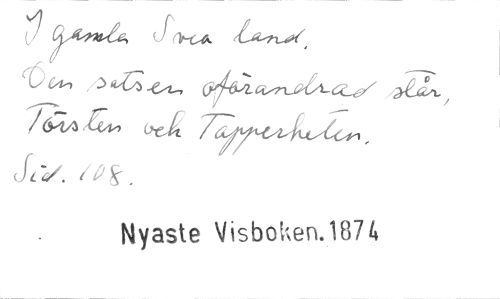 I gamla Svea land.
Den satsen oförändrad står,
Törsten och Tapperheten.
Sid. 108.
Nyaste Visboken. 1874